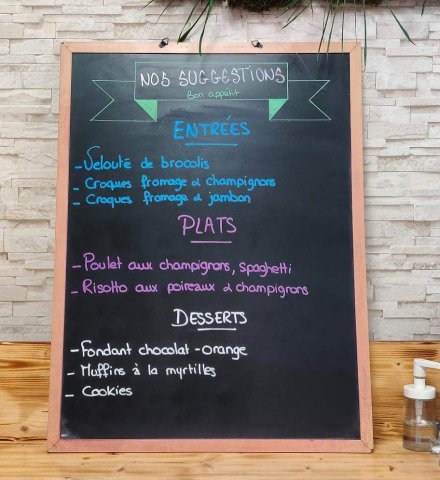 NOS SUGGESTIONS
Bon appétit
ENTRÉES
- Velouté de brocolis
- Croques fromage & champignons
- Croques fromage & jambon
PLATS
- Poulet aux champignons, spaghetti
- Risotto aux poireaux & champignons
DESSERTS
- Fondant chocolat - orange
- Muffins à la myrtilles
- Cookies